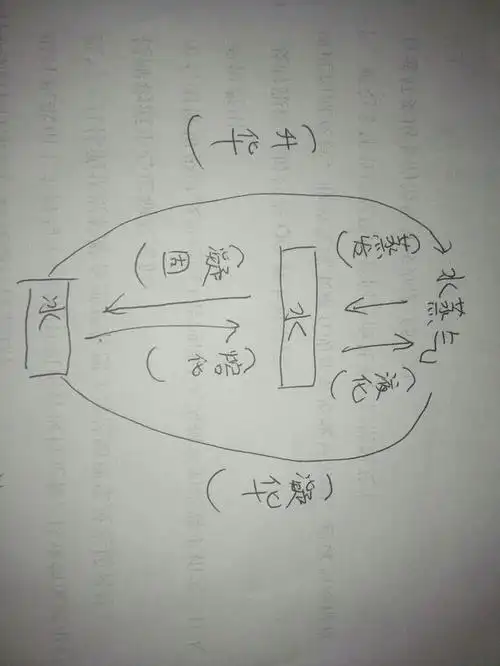 (升华)
水蒸气
(蒸发)
(液化)
水
(凝固)
(熔化)
冰
(凝华)